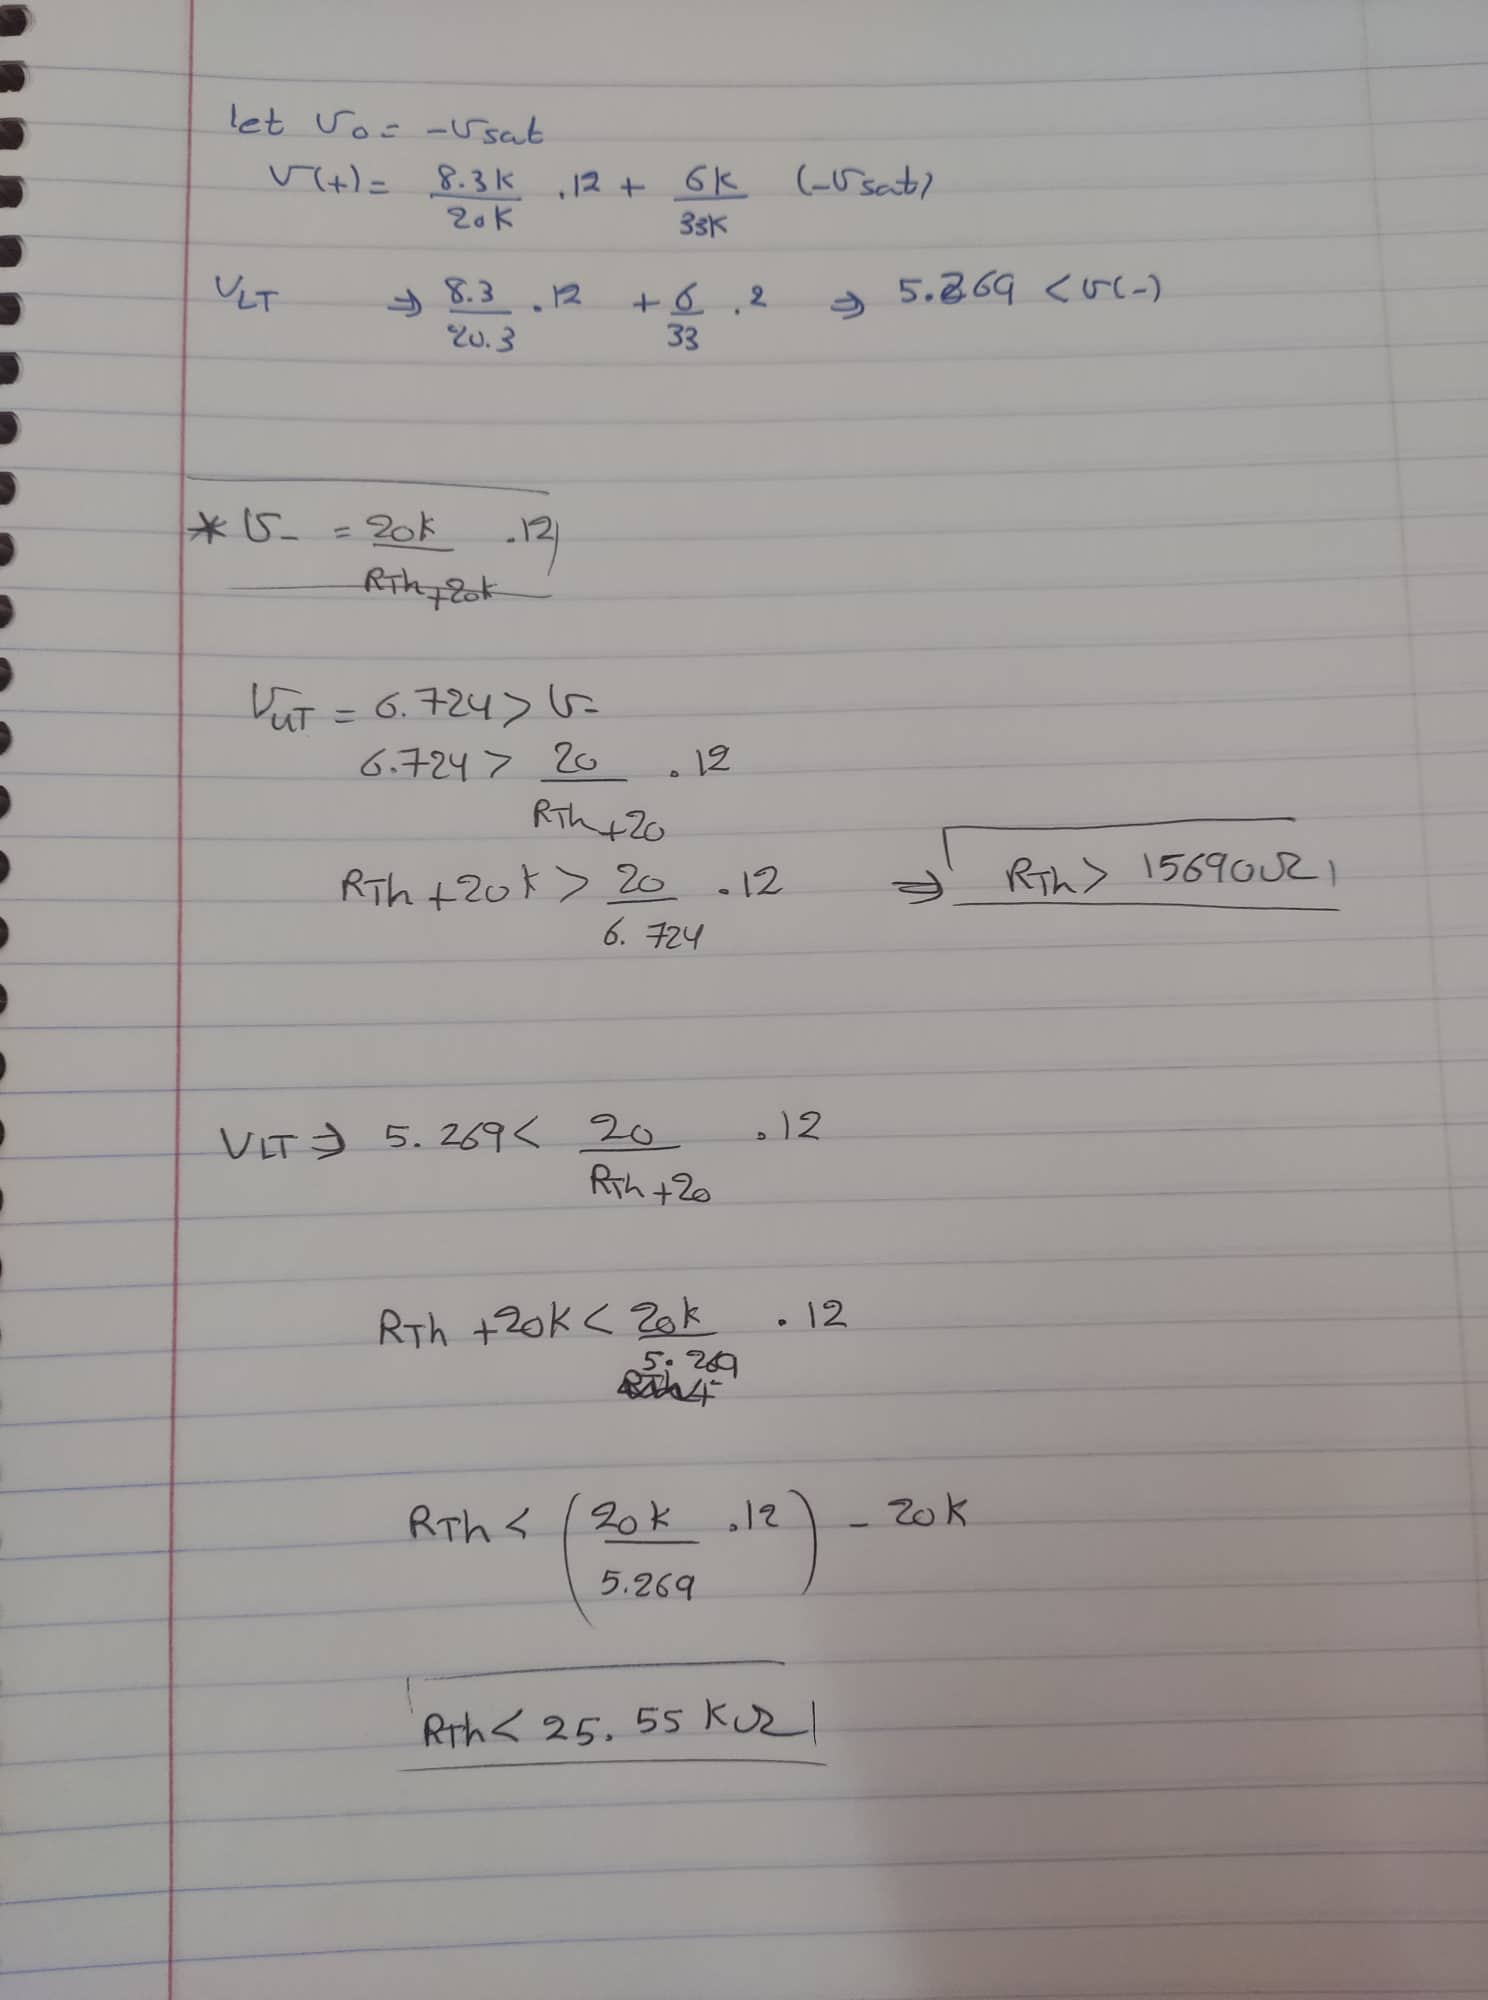 let Vo = -Vsat
V(+) = 8.3K/20K .12 + 6K/33K (-Vsat)
VLT ⇒ 8.3/20.3 .12 + 6/33 .2 ⇒ 5.269 < V(-)
* V- = 20k/RTh+20k .12
VUT = 6.724 > V-
6.724 > 20/RTh+20 .12
RTh + 20k > 20/6.724 .12 ⇒ RTh > 15690Ω
VLT ⇒ 5.269 < 20/RTh+20 .12
RTh + 20k < 20k/5.269 .12
RTh < (20k/5.269 .12) - 20k
RTh < 25.55 KΩ